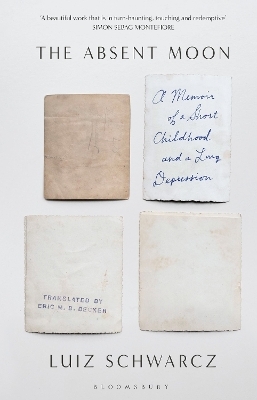 'A beautiful work that is in turn haunting, touching and redemptive'
SIMON SEBAG MONTEFIORE
THE ABSENT MOON
A Memoir
of a Short
Childhood
and a Long
Depression
TRANSLATED BY
ERIC M. B. BECKER
LUIZ SCHWARCZ
BLOOMSBURY